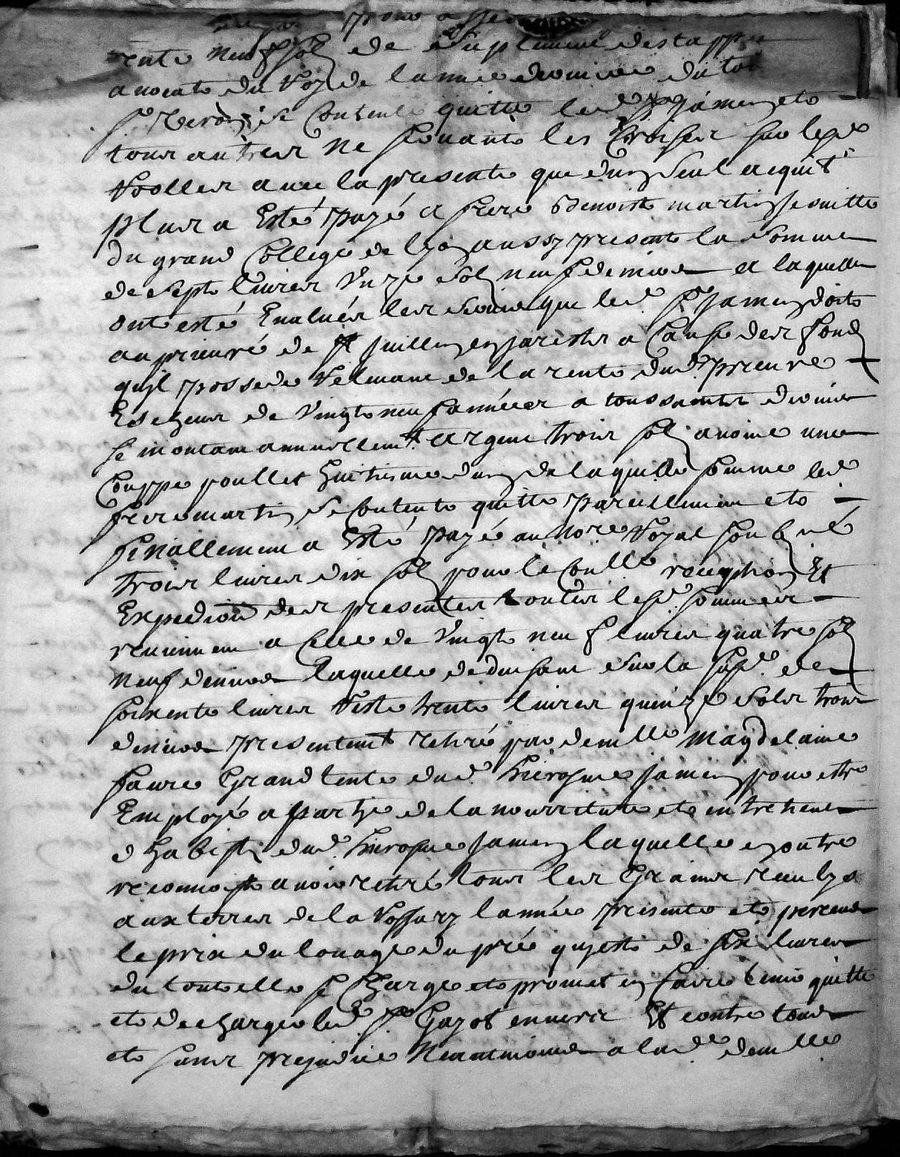 pour
rente neuf sols de supplement des
avocats du Roy de l'année derniere du tout
se contente quitte led. Sr Jamen et
tous autres ne pouvant les sur lesd.
Roolles avec la presente que d'un seul acquit
plus a esté payé a frere Benoist martin Jesuitte
du grand College de Lyon aussy present la somme
de sept livres unze sols neuf deniers a laquelle
ont esté Evalués les que led. Sr Jamen doit
au prieuré de St Juillen en Jarest a Cause des fonds
qu'il possede Relevant de la rente dud. prieuré
Escheus de Vingt neuf années a toussaints dernier
se montant annuellemt. argent trois sols avoine une
Couppe poulles huitieme d'un de laquelle somme led.
frere martin se Contente quitte pareillement et
finallement a Esté payé au no.re Royal soubsné
trois livres dix sols pour le Conlle reception Et
Expedition des presentes toutes lesd. sommes
reviennent a Celle de Vingt neuf livres quatre sols
neuf deniers laquelle deduisant sur la susd. de
soixente livres Reste trente livres quinze sols trois
deniers presentemt retiré par demlle Magdelaine
faure Grand tente dud. hierosme Jamen pour estre
Employé a partye de la nourriture et entretenement
d'habits dud. hierosme Jamen laquelle en outre
reconnoist avoir retiré tous les Grains
aux terres de la l'année presente et perceu
le prix du louage du pré quest de six livres
du tout elle se Charge et promet en faire tenir quitte
et decharge led. Sr Gayot envers Et contre tous
et sans prejudice Neantmoins a lad. demlle